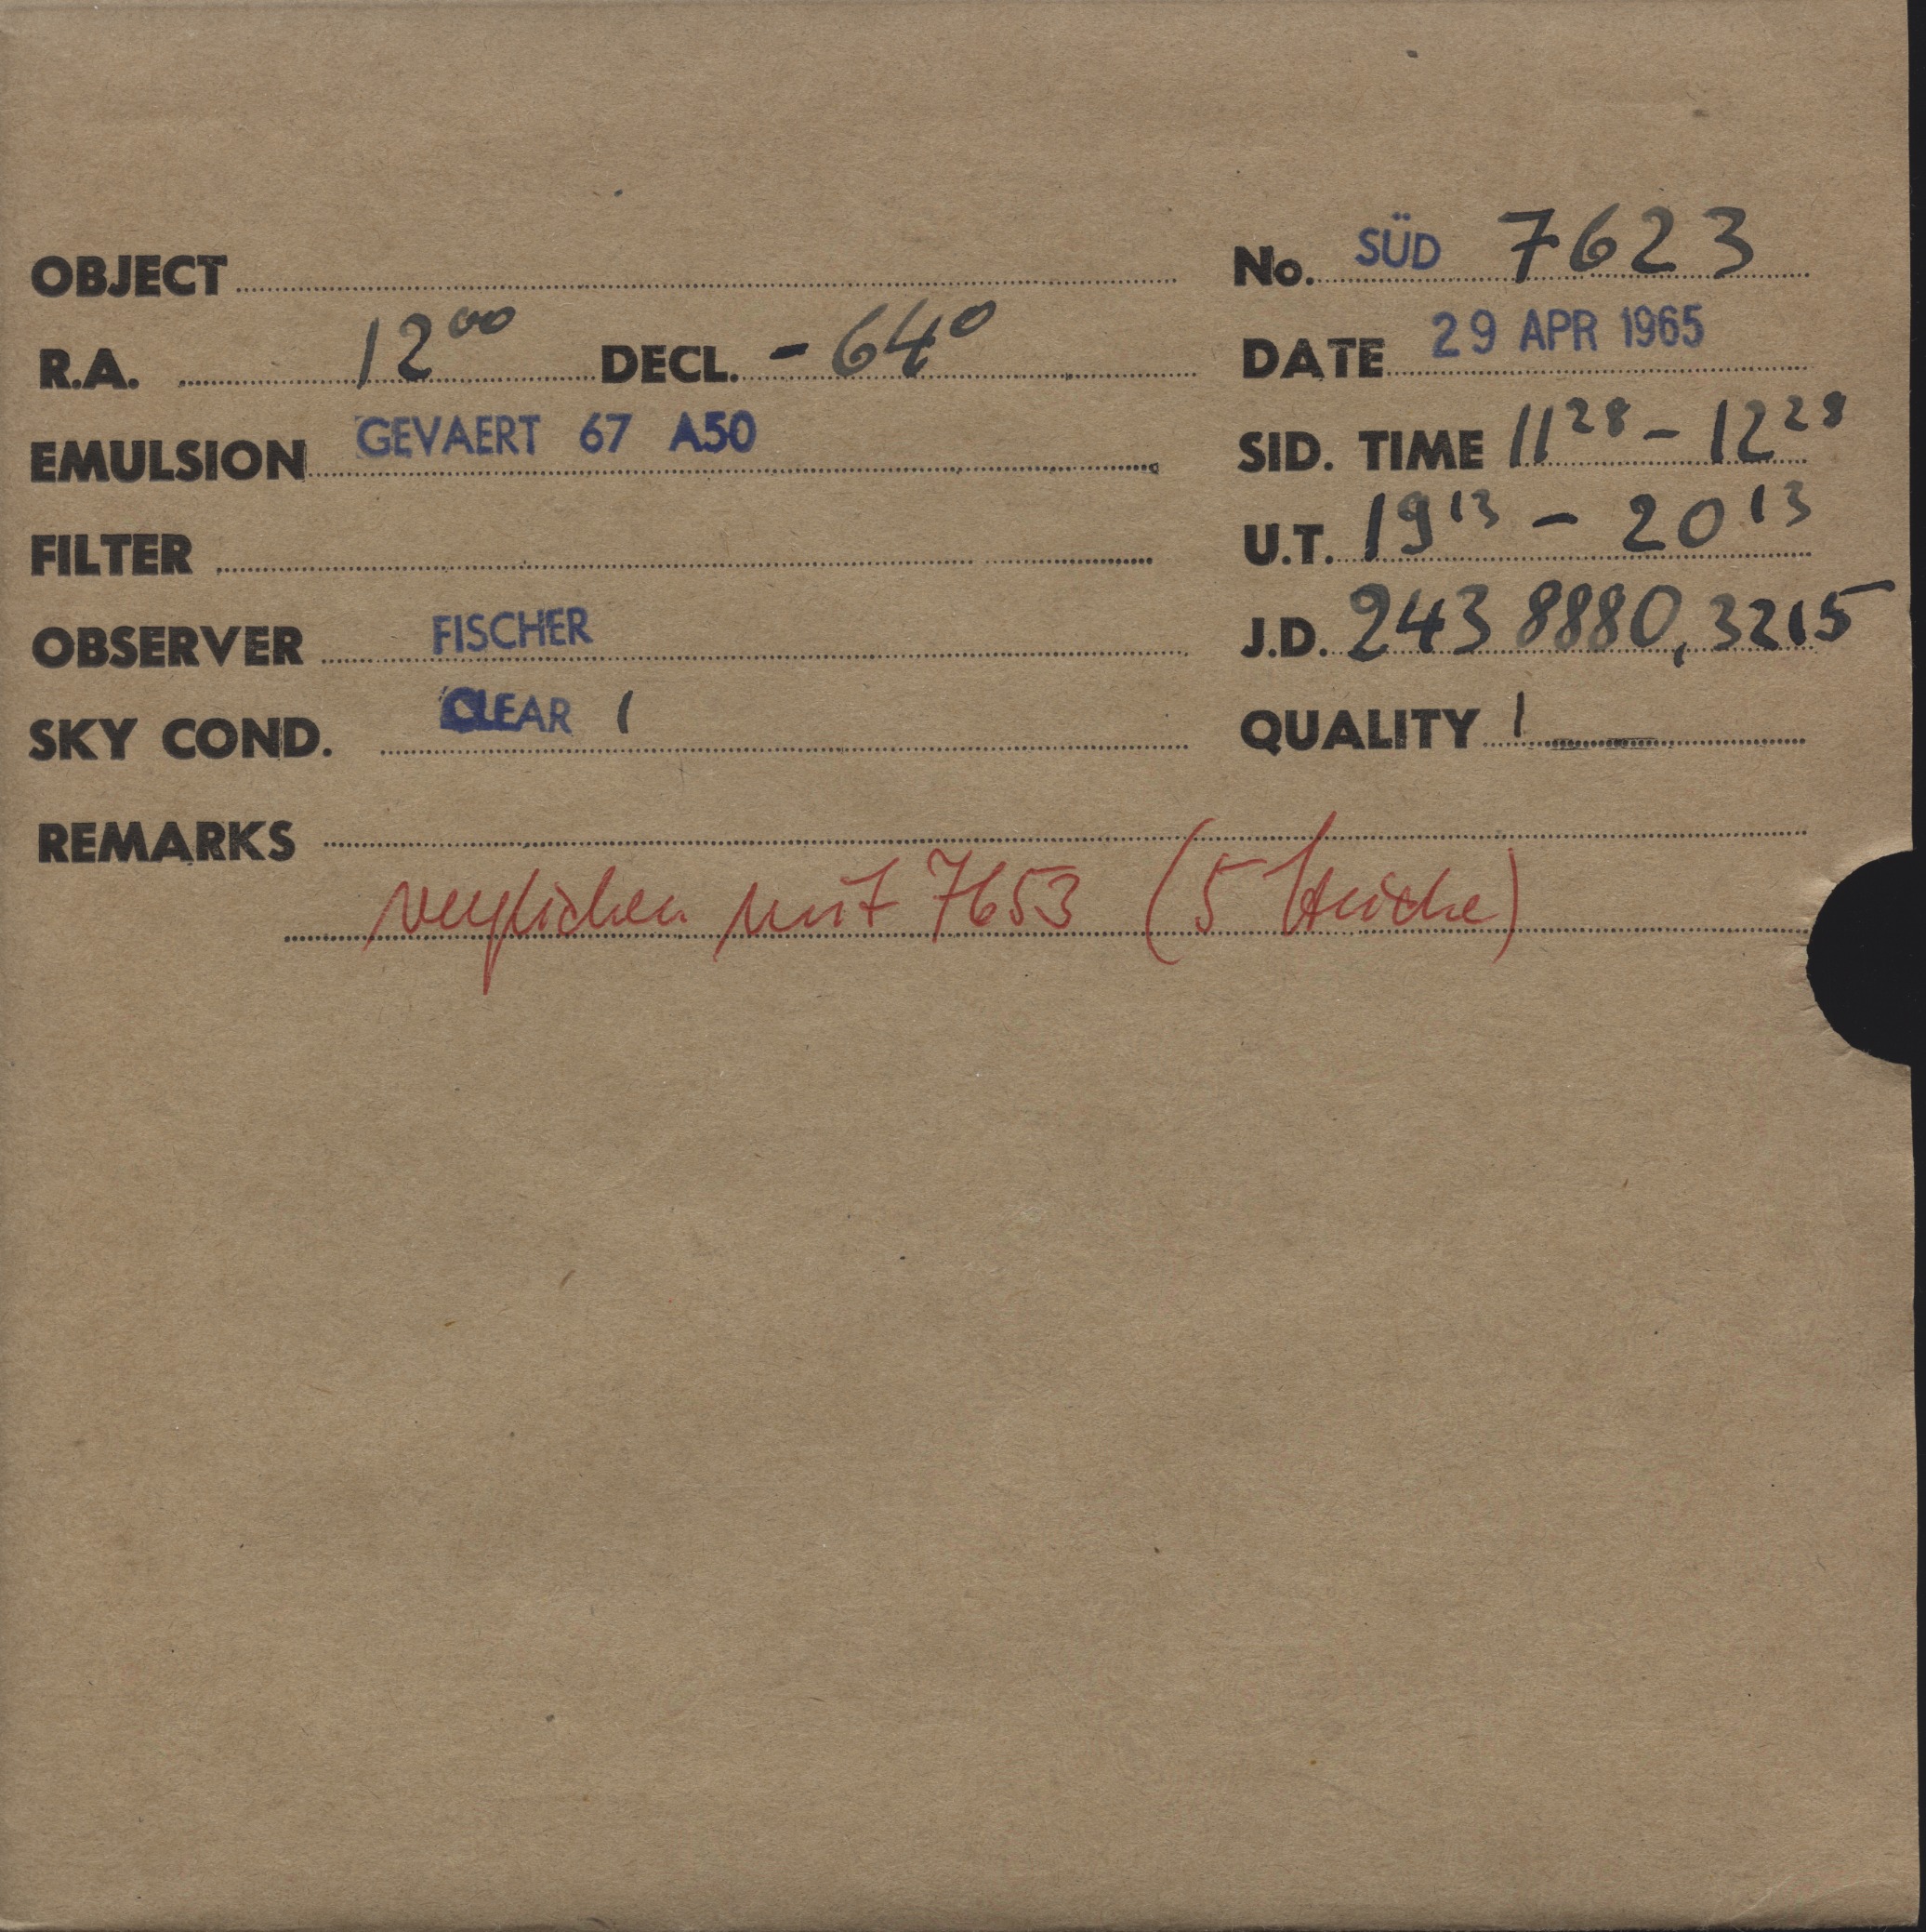 OBJECT No. SÜD 7623
R.A. 12⁰⁰ DECL. -64° DATE 29 APR 1965
EMULSION GEVAERT 67 A50 SID. TIME 11²⁸ - 12²⁸
FILTER U.T. 19¹³ - 20¹³
OBSERVER FISCHER J.D. 243 8880,3215
SKY COND. CLEAR 1 QUALITY 1
REMARKS
verglichen mit 7653 (5 Striche)